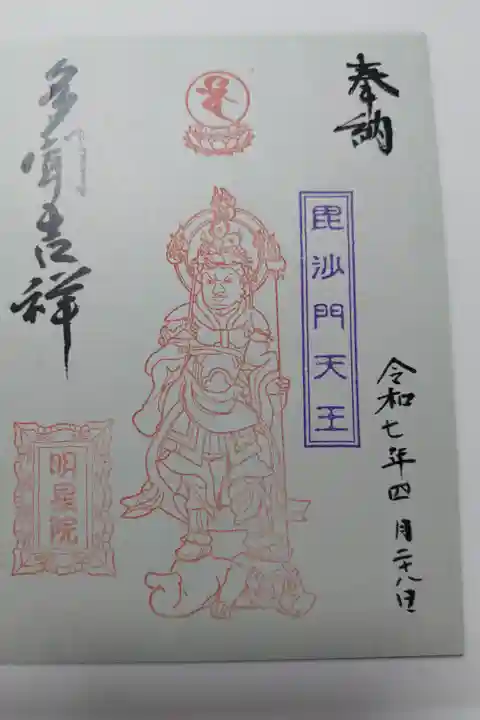 奉納
令和七年四月二十八日
毘沙門天王
多聞吉祥
明星院